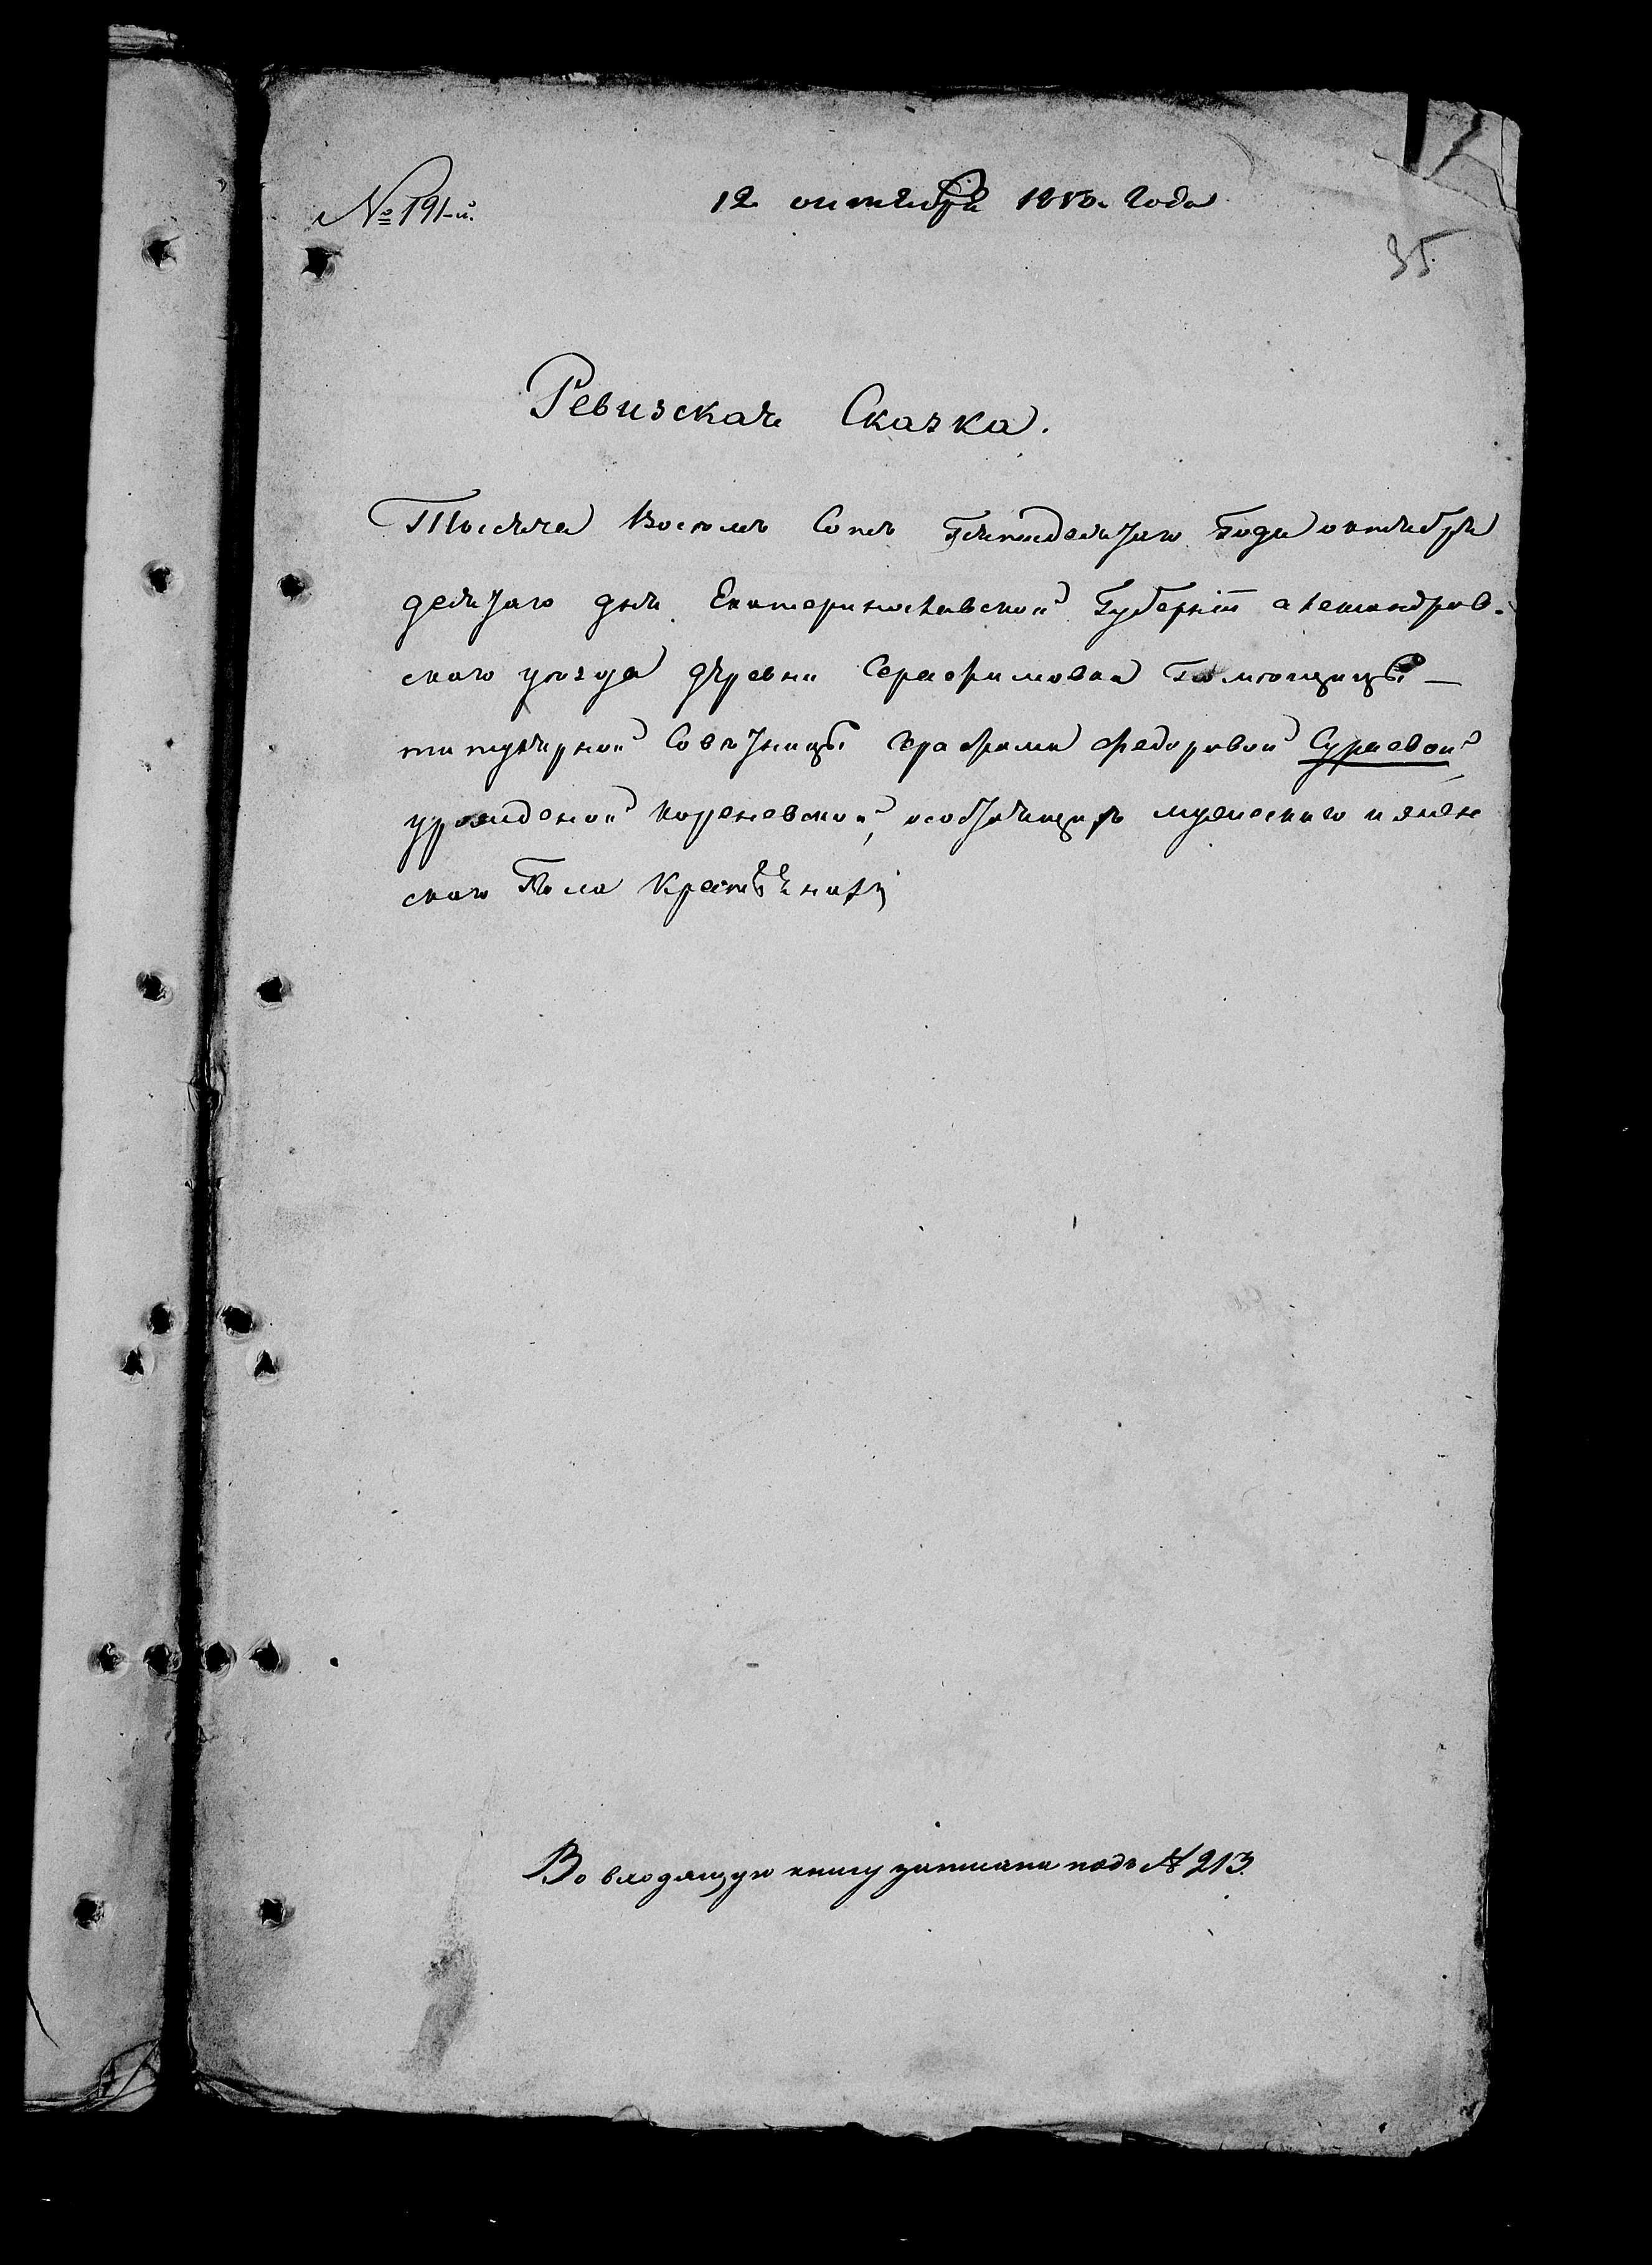 № 191-й.
12 октября 1850. года
35
Ревизская Сказка.
Тысяча Восемь Сотъ Пятидесятаго Года октября
десятаго дня Екатеринославской Губерніи александров-
скаго уезда деревни Серафимовки Помющицы
титулярной Советницы Серафимы Федоровой Сураевой
урожденой Кореневской, о состоящихъ мужескаго и женс
скаго Пола Крестьянахъ
Во входящую книгу записана подъ № 213.